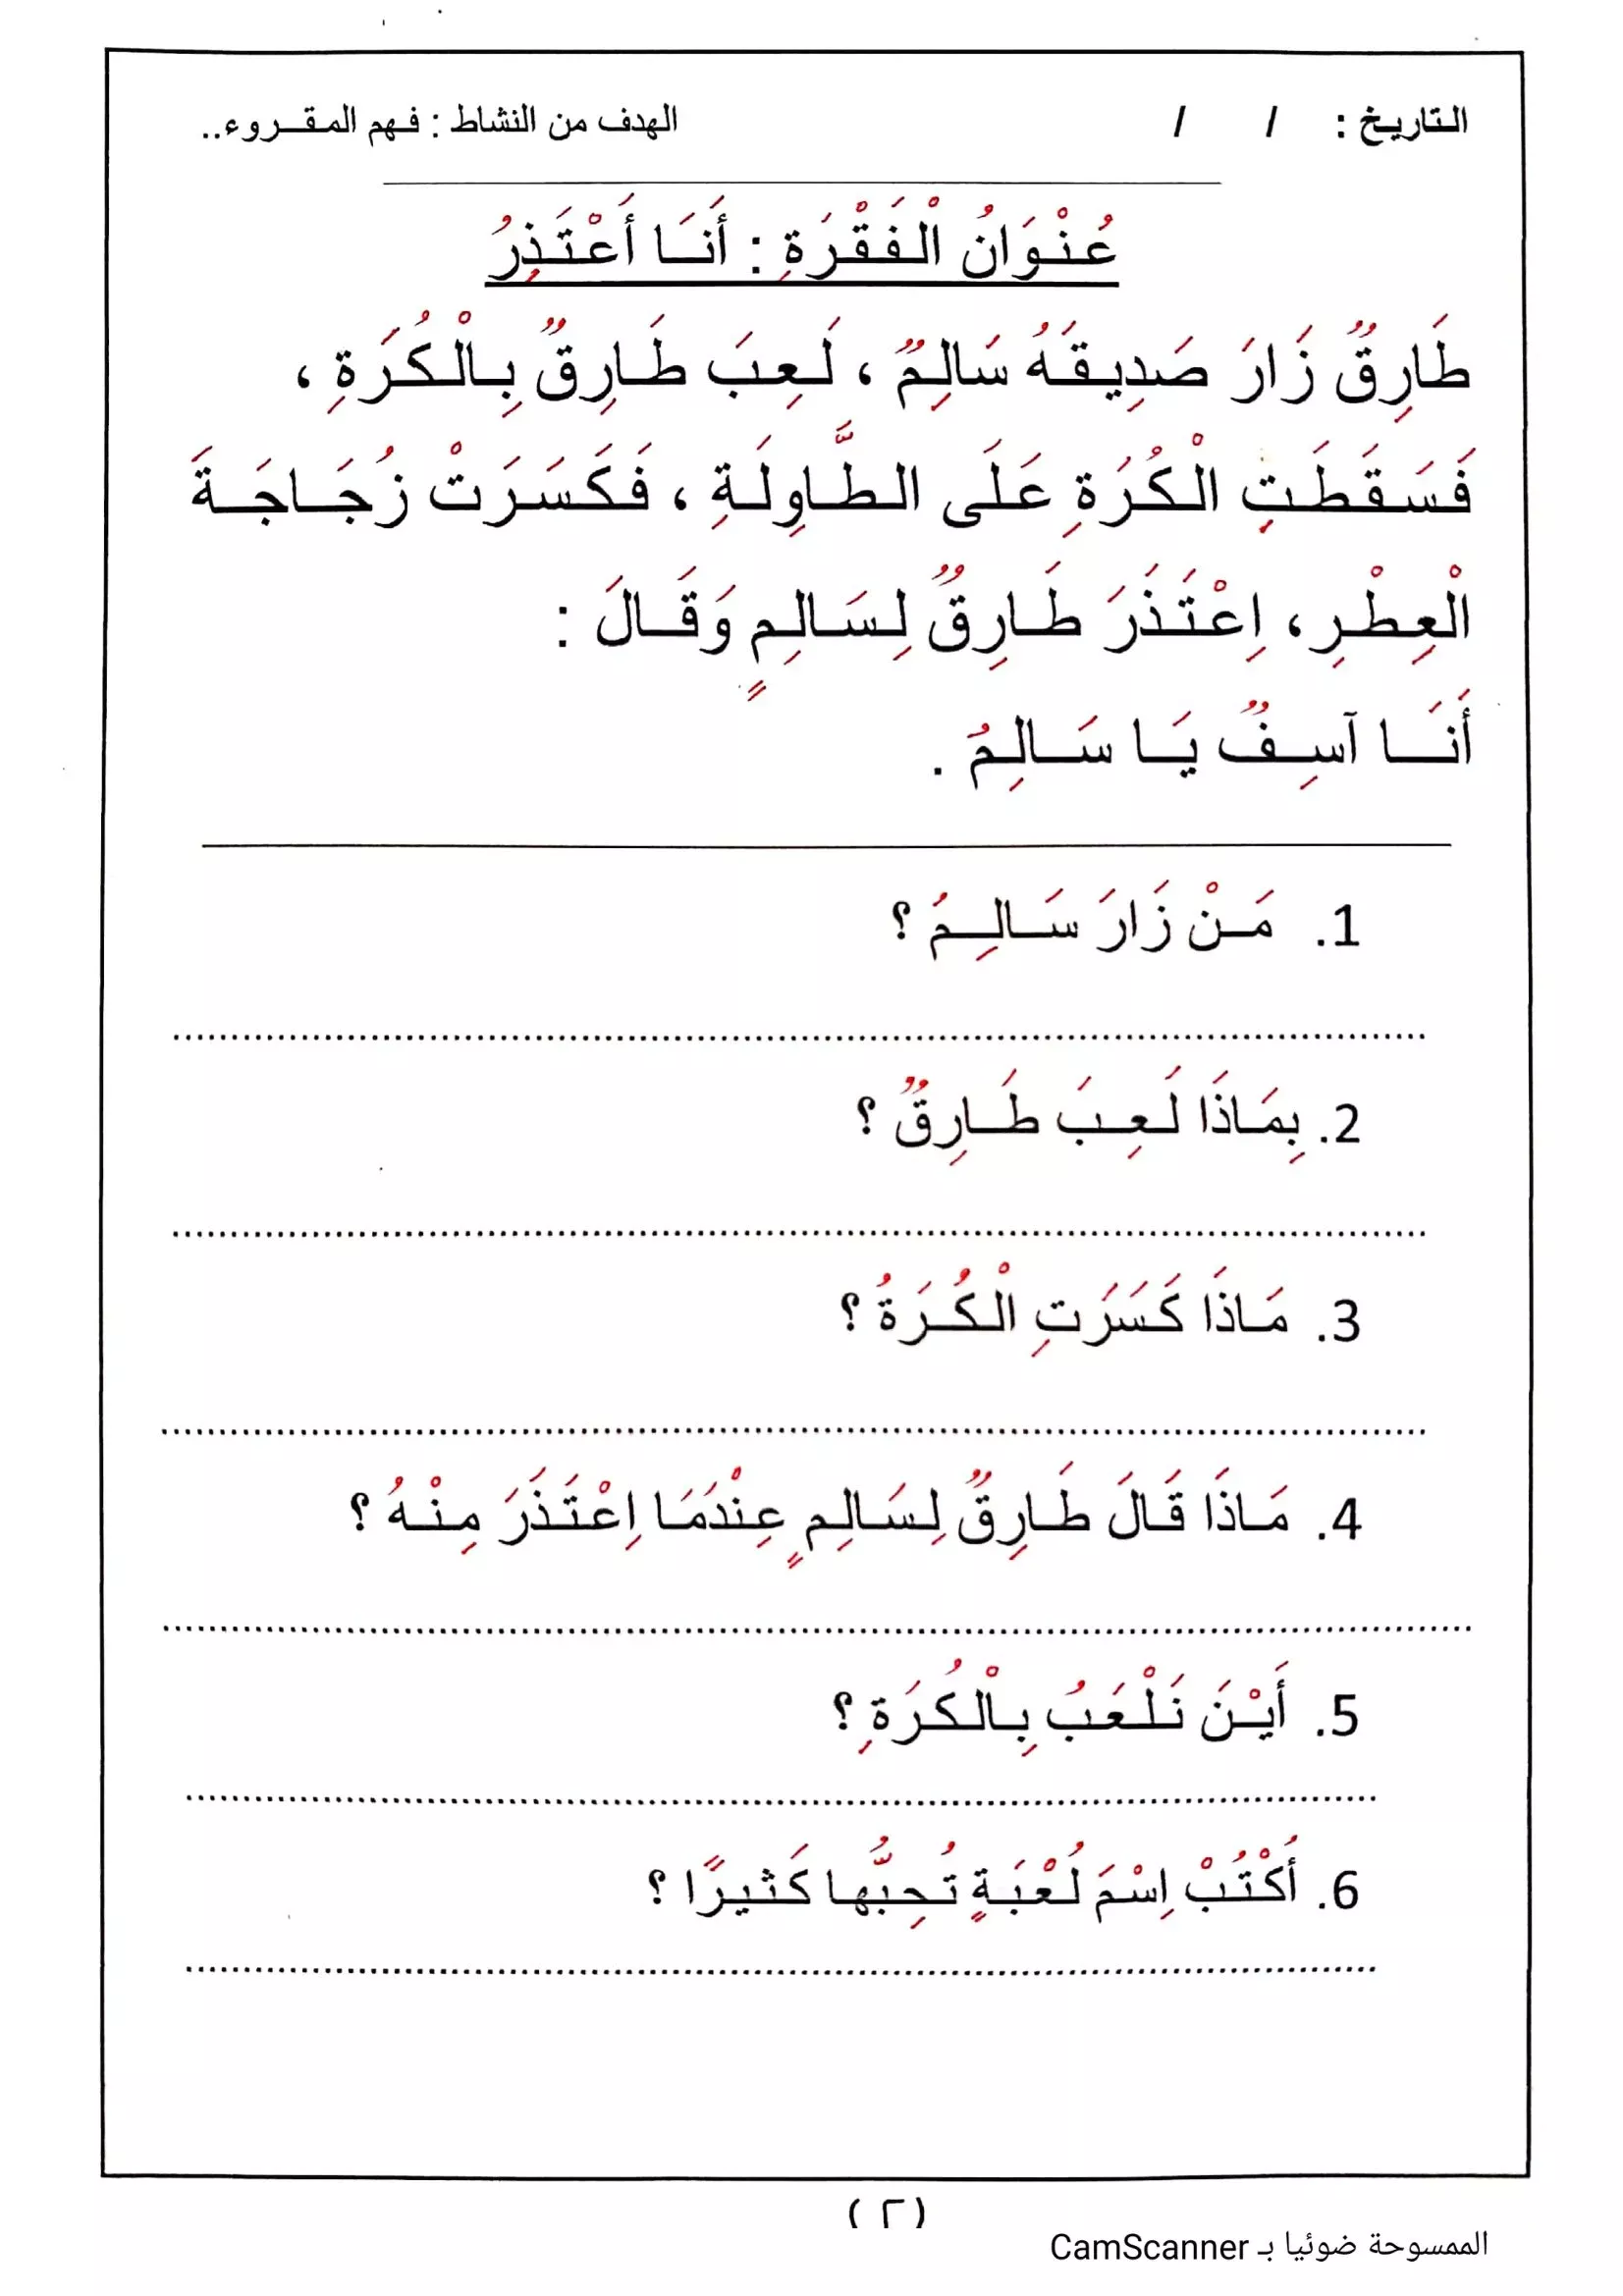 التاريخ : / / الهدف من النشاط : فهم المقروء..
عُنْوَانُ الْفَقْرَةِ : أَنَا أَعْتَذِرُ
طَارِقٌ زَارَ صَدِيقَهُ سَالِمٌ ، لَعِبَ طَارِقٌ بِالْكُرَةِ ،
فَسَقَطَتِ الْكُرَةِ عَلَى الطَّاوِلَةِ ، فَكَسَرَتْ زُجَاجَةَ
الْعِطْرِ، اِعْتَذَرَ طَارِقٌ لِسَالِمٍ وَقَالَ :
أَنَا آسِفٌ يَا سَالِمُ .
1. مَنْ زَارَ سَالِمُ ؟
2. بِمَاذَا لَعِبَ طَارِقٌ ؟
3. مَاذَا كَسَرَتِ الْكُرَةُ ؟
4. مَاذَا قَالَ طَارِقٌ لِسَالِمٍ عِنْدَمَا اِعْتَذَرَ مِنْهُ ؟
5. أَيْنَ نَلْعَبُ بِالْكُرَةِ ؟
6. أُكْتُبْ اِسْمَ لُعْبَةٍ تُحِبُّها كَثيرًا ؟
(٢)
الممسوحة ضوئيا بـ CamScanner